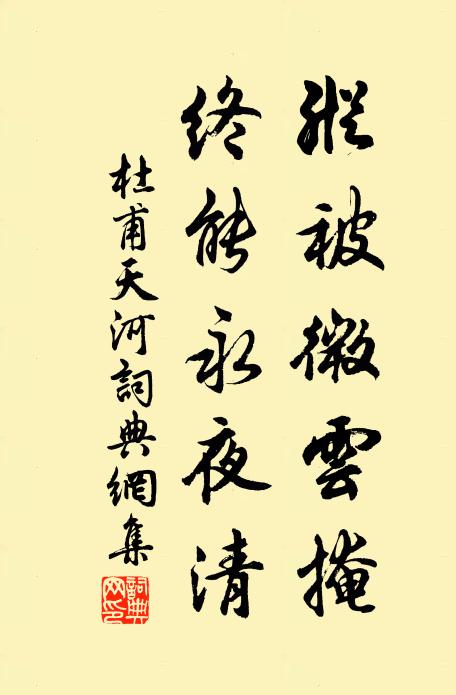 縱被微雲掩
終能永夜清
杜甫天河詞典網集
詞典網印